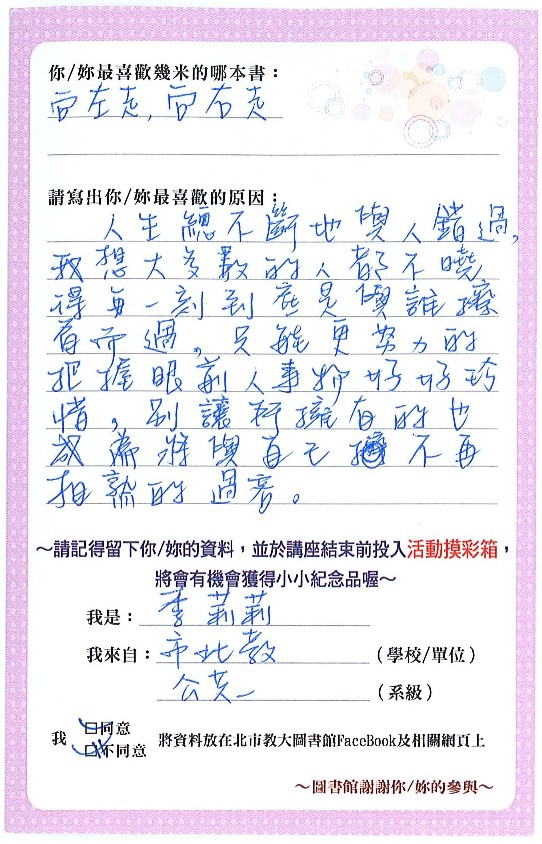 你/妳最喜歡幾米的哪本書：
向左走，向右走
請寫出你/妳最喜歡的原因：
人生總不斷地與人錯過，
我想大多數的人都不曉
得每一刻到底是與誰擦
肩而過，只能更努力的
把握眼前人事物好好珍
惜，別讓所擁有的也
成為將與自己不再
相熟的過客。
～請記得留下你/妳的資料，並於講座結束前投入活動摸彩箱，
將會有機會獲得小小紀念品喔～
我是：李莉莉
我來自：市北教（學校/單位）
公英一（系級）
我 □同意
□不同意 將資料放在北市教大圖書館FaceBook及相關網頁上
～圖書館謝謝你/妳的參與～